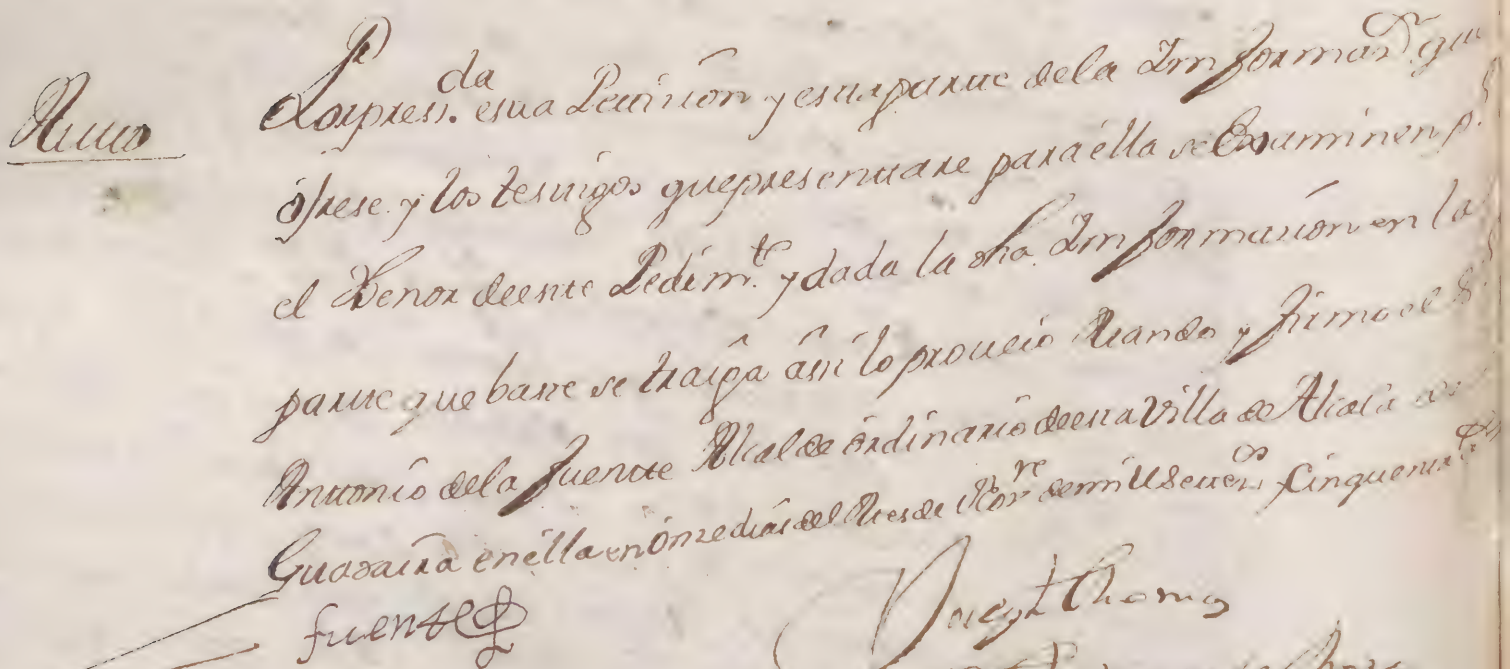 Autto
Por presen.da esta Peticion y esta parte de la Imformaᵒⁿ que
ofrese y los testigos que presentare para ella se Examinen p.r
el thenor de este Pedim.to y dada la dha Imformacion en la
parte que baste se traiga assi lo proueio Mando y firmo el S.r
Antonio de la fuente Alcalde ordinario de esta Villa de Alcala de
Guadaira en ella en onze dias del Mes de Nov.re de mill setez.os y Cinquenta
fuente
Thomas